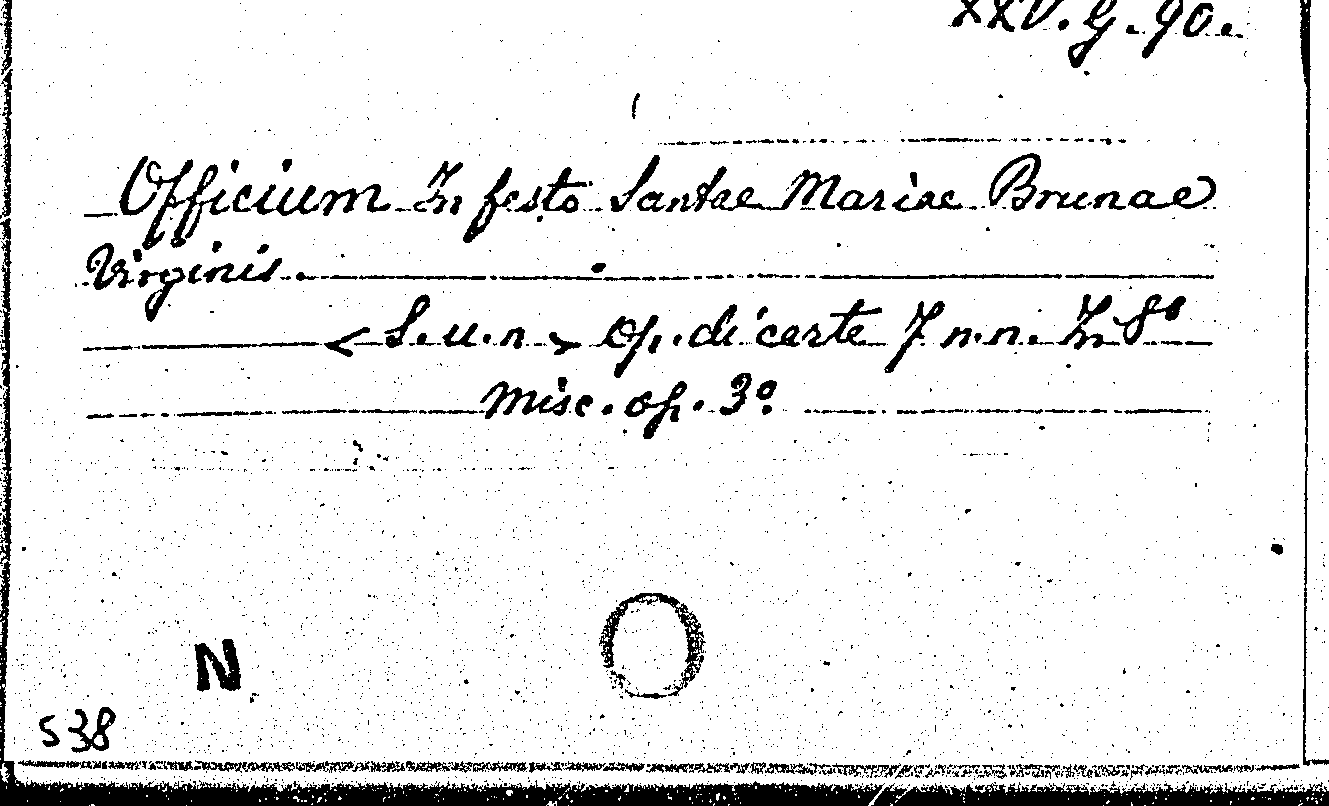 XXV. G. 90.
Officium In festo Santae Mariae Brunae
Virginis.
< S. u. n. > Op. di carte 7 n.n. In 8º
Misc. op. 3º.
N
538